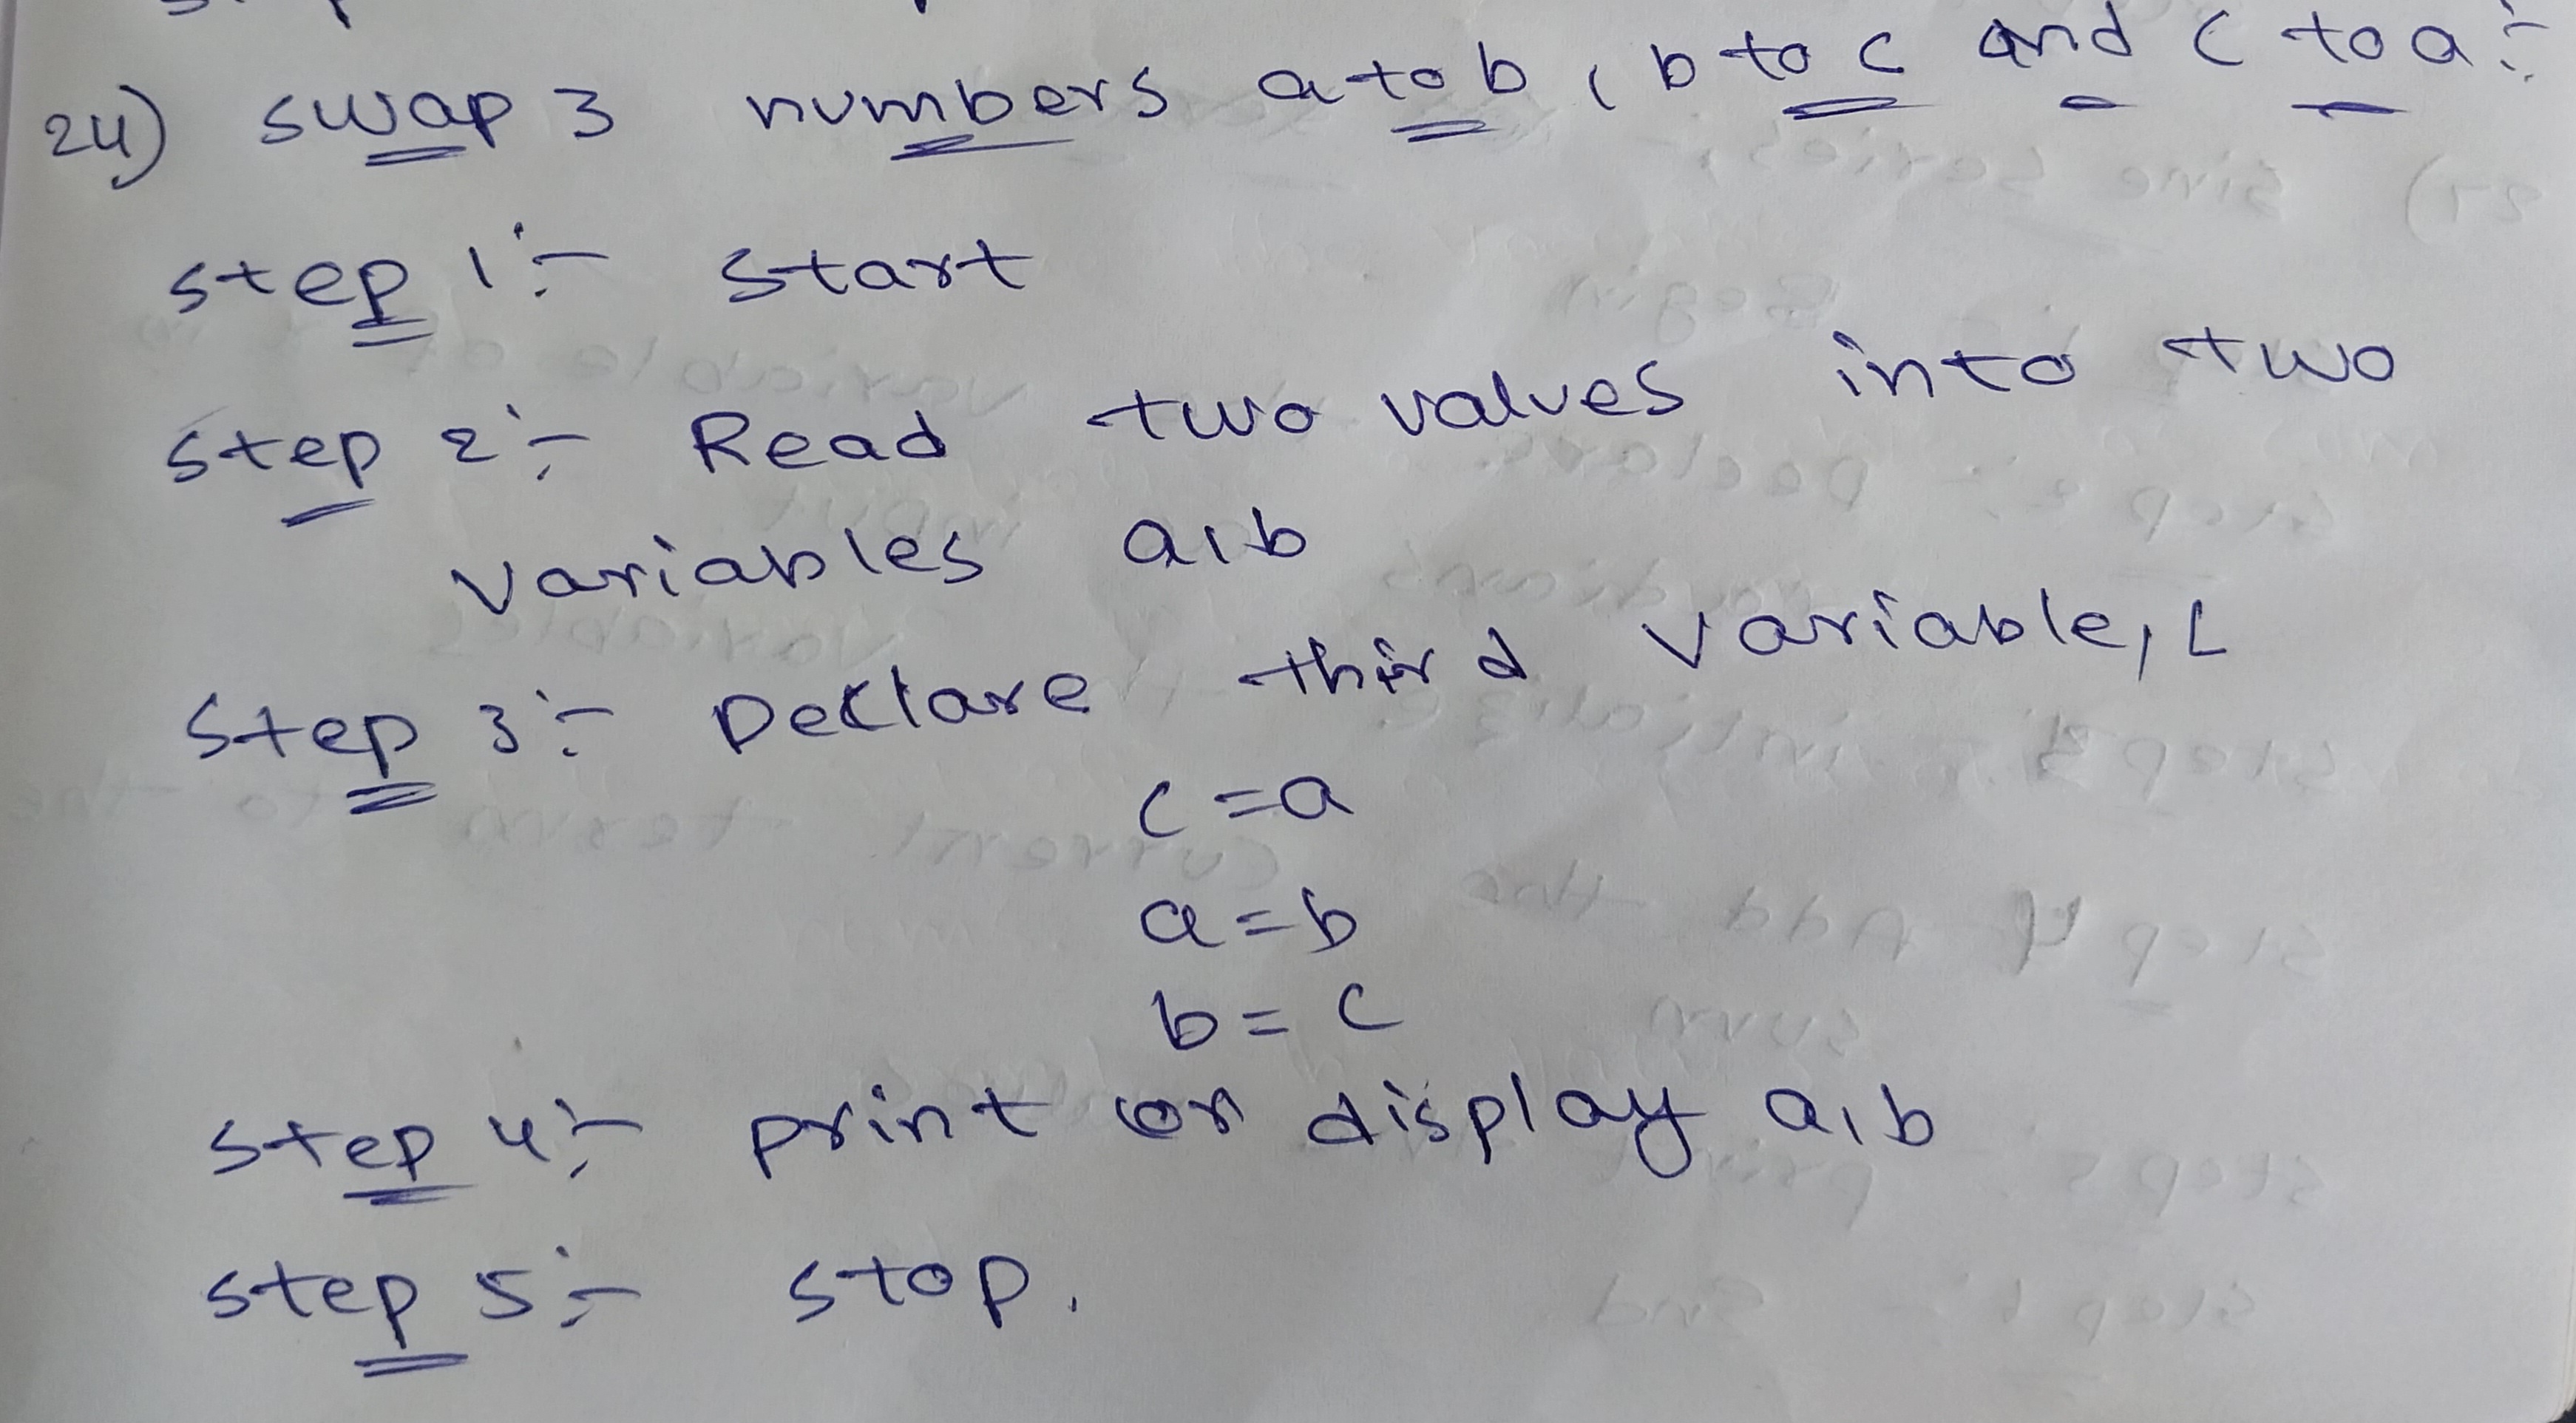 24) swap 3 numbers a to b, b to c and c to a :-
step 1 :- start
step 2 :- Read two values into two
variables a,b
step 3 :- Declare third variable, c
c = a
a = b
b = c
step 4 :- print or display a,b
step 5 :- stop.